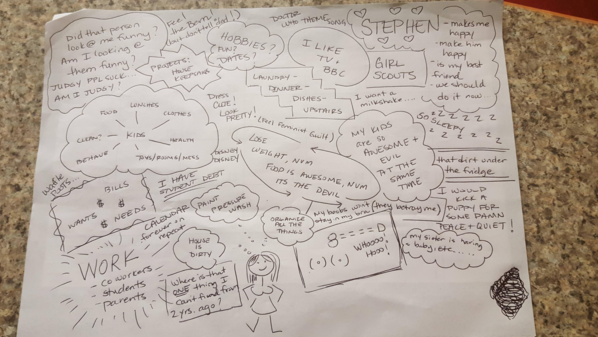 Did that person
look @ me funny?
Am I looking @
them funny?
JUDGY PPL SUCK...
AM I JUDGY?
Feel the Bern!
(but don't get bad!)
PROJECTS:
HOUSE
KEEPING
HOBBIES?
FUN?
DATES?
DOCTOR
WHO THEME SONG
I LIKE
TV +
BBC
STEPHEN
- makes me
happy
- make him
happy
- is my best
friend
- we should
do it now
GIRL
SCOUTS
I want a
milkshake....
LAUNDRY-
DINNER-
DISHES-
UPSTAIRS
DRESS
CUTE!
LOOK
PRETTY!
(Feel Feminist Guilt)
FOOD
LUNCHES
CLOTHES
CLEAN?
KIDS
HEALTH
BEHAVE
TOYS/ROOMS/MESS
DISNEY
DISNEY
LOSE
WEIGHT, NVM
FOOD IS AWESOME, NVM
ITS THE DEVIL
MY KIDS
are SO
AWESOME +
EVIL
AT THE
SAME
TIME
SO
SLEEPY
z z z z z
z z z z z
that dirt under
the fridge
I WOULD
KICK A
PUPPY FOR
SOME DAMN
PEACE + QUIET!
my sister is having
a baby, etc.....
BILLS
$ $
WANTS $ NEEDS
I HAVE
STUDENT DEBT
CALENDAR
forever on
repeat
PAINT
PRESSURE
WASH
ORGANIZE
ALL THE
THINGS
My boobs won't
stay in my bra
(they betray me)
8====D
WHOOOO!
HOOO!
(.)(.)
HOUSE
IS
DIRTY
WORK
coworkers
- students
parents -
Where is that
ONE thing I
can't find from
2 yrs. ago?